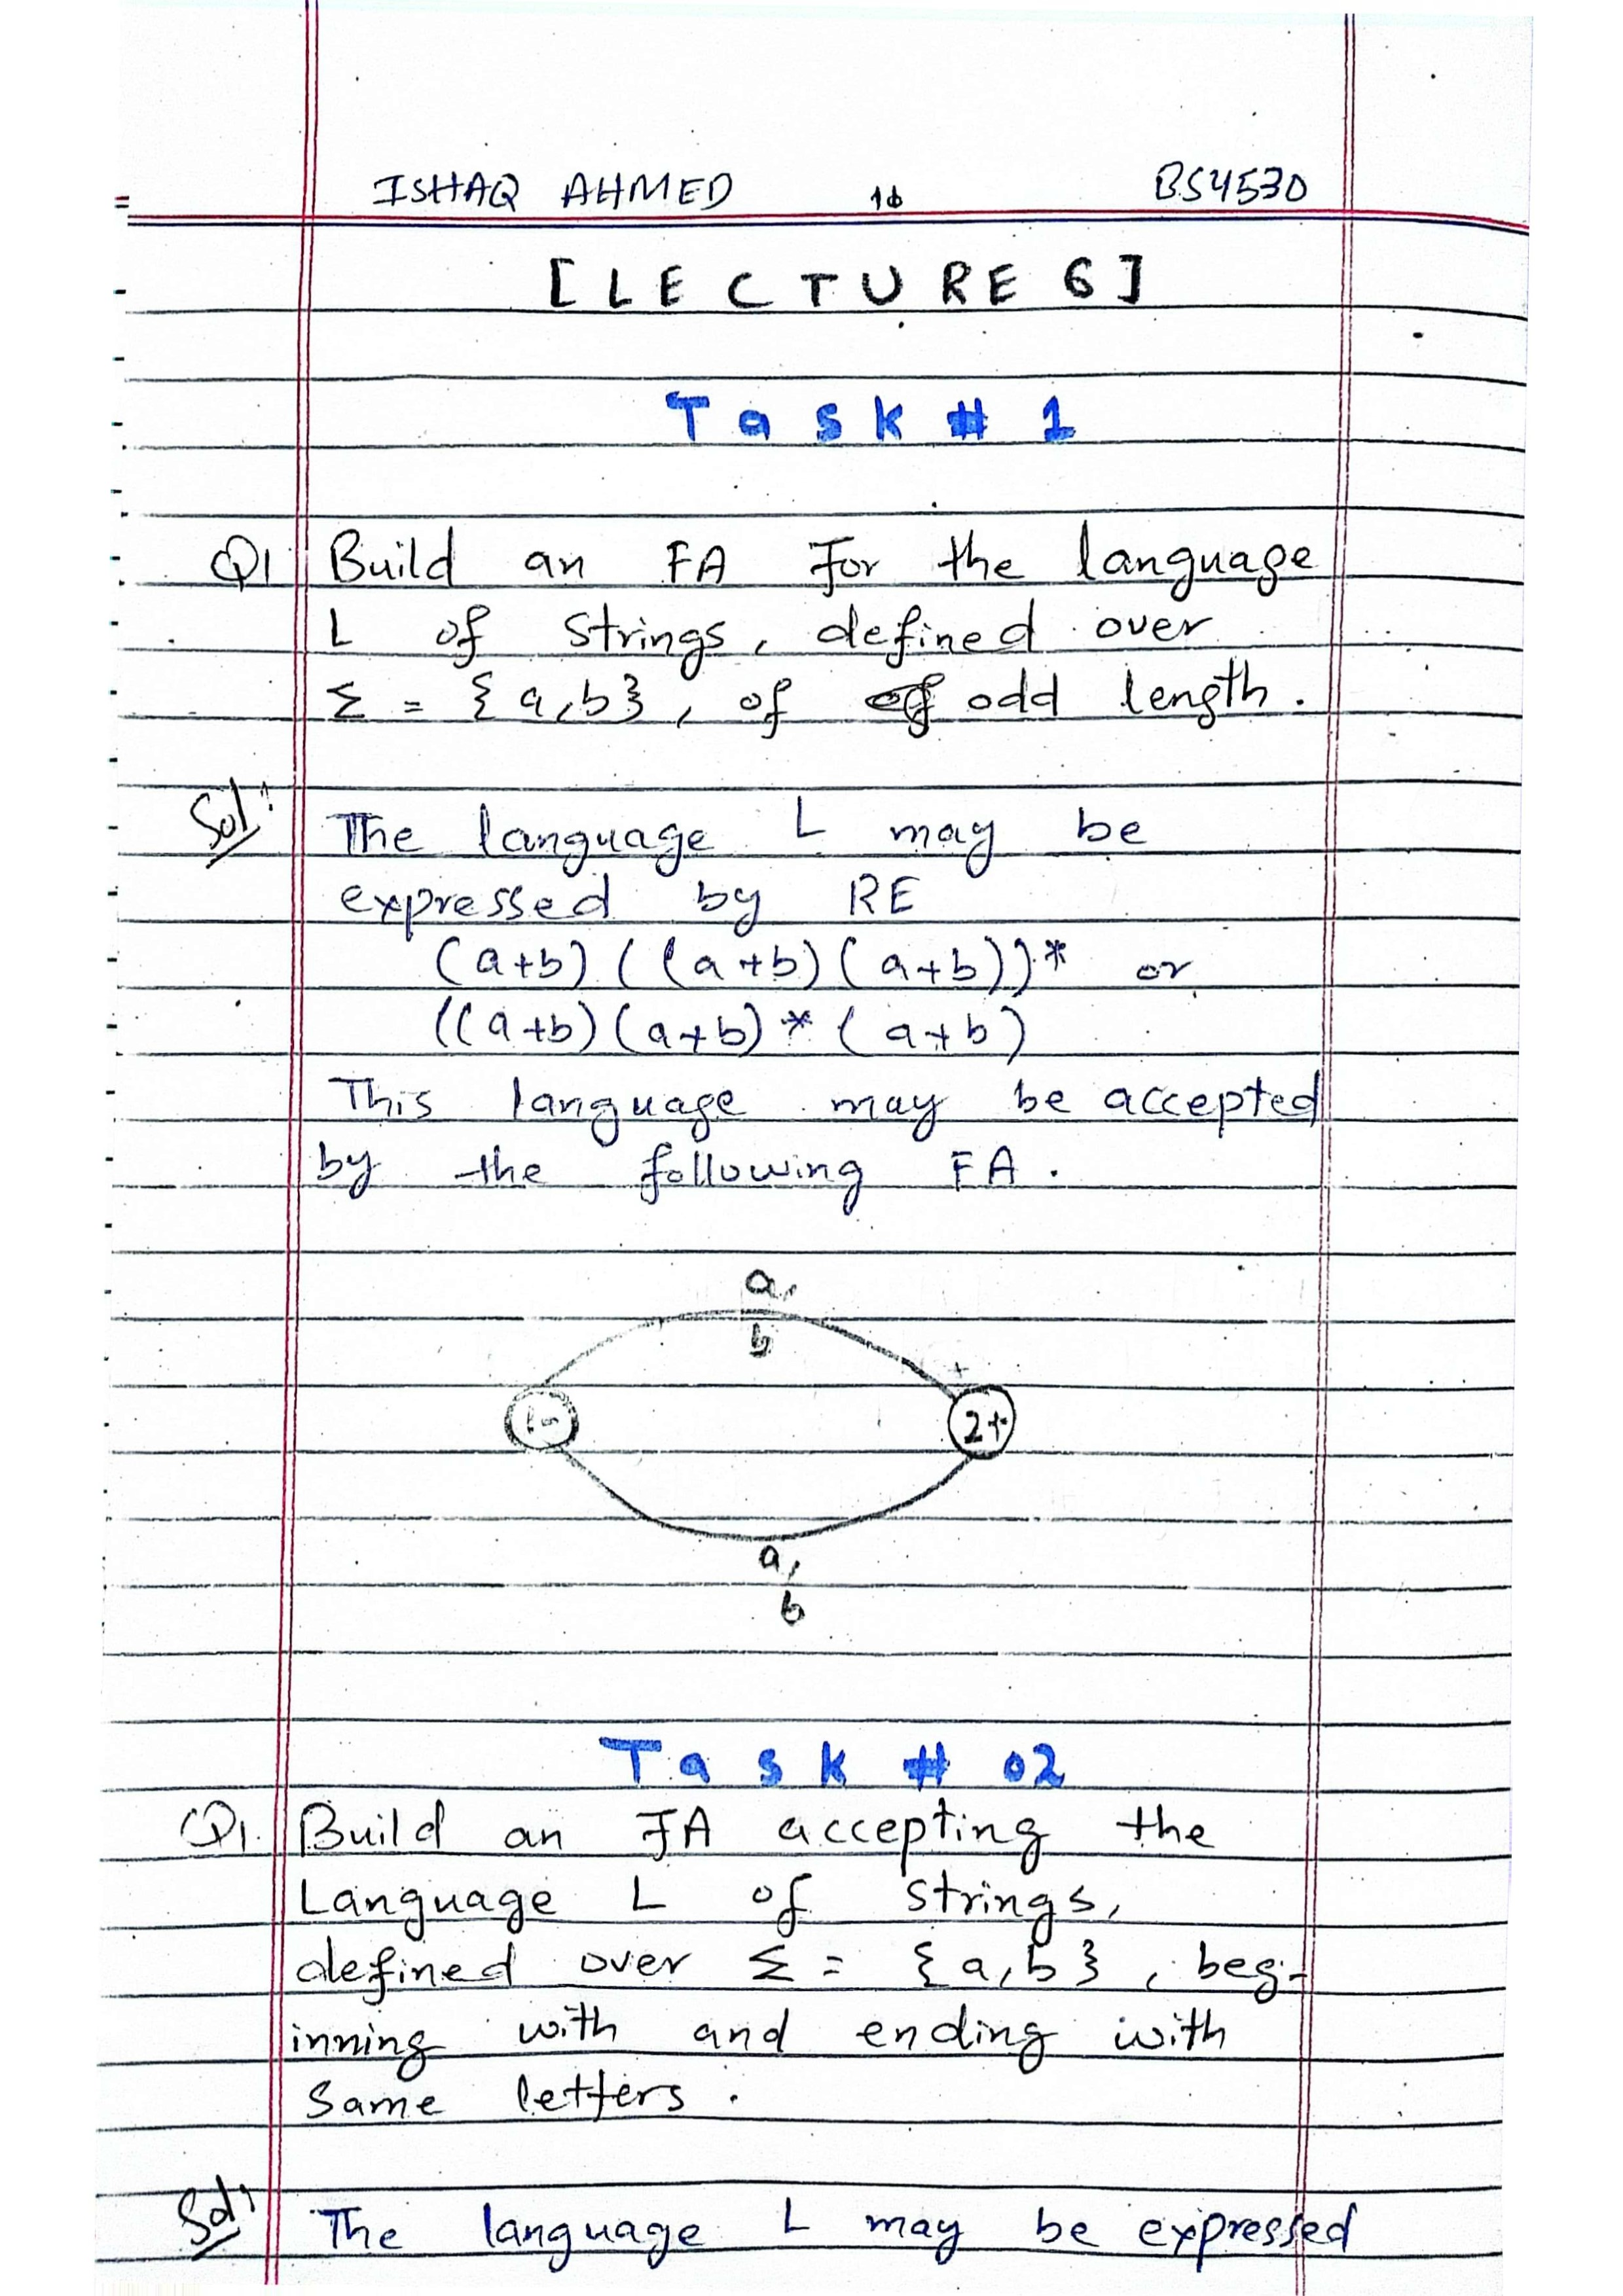 ISHAQ AHMED BS4530
[LECTURE 6]
Task # 1
Q1 Build an FA For the language
L of strings, defined over
Σ = {a,b}, of of odd length.
Sol: The language L may be
expressed by RE
(a+b) ((a+b)(a+b))* or
((a+b)(a+b)*(a+b)
This language may be accepted
by the following FA.
a,
b
1-
2+
a,
b
Task # 02
Q1. Build an FA accepting the
Language L of strings,
defined over Σ = {a,b}, beg-
inning with and ending with
Same letters.
Sol: The language L may be expressed